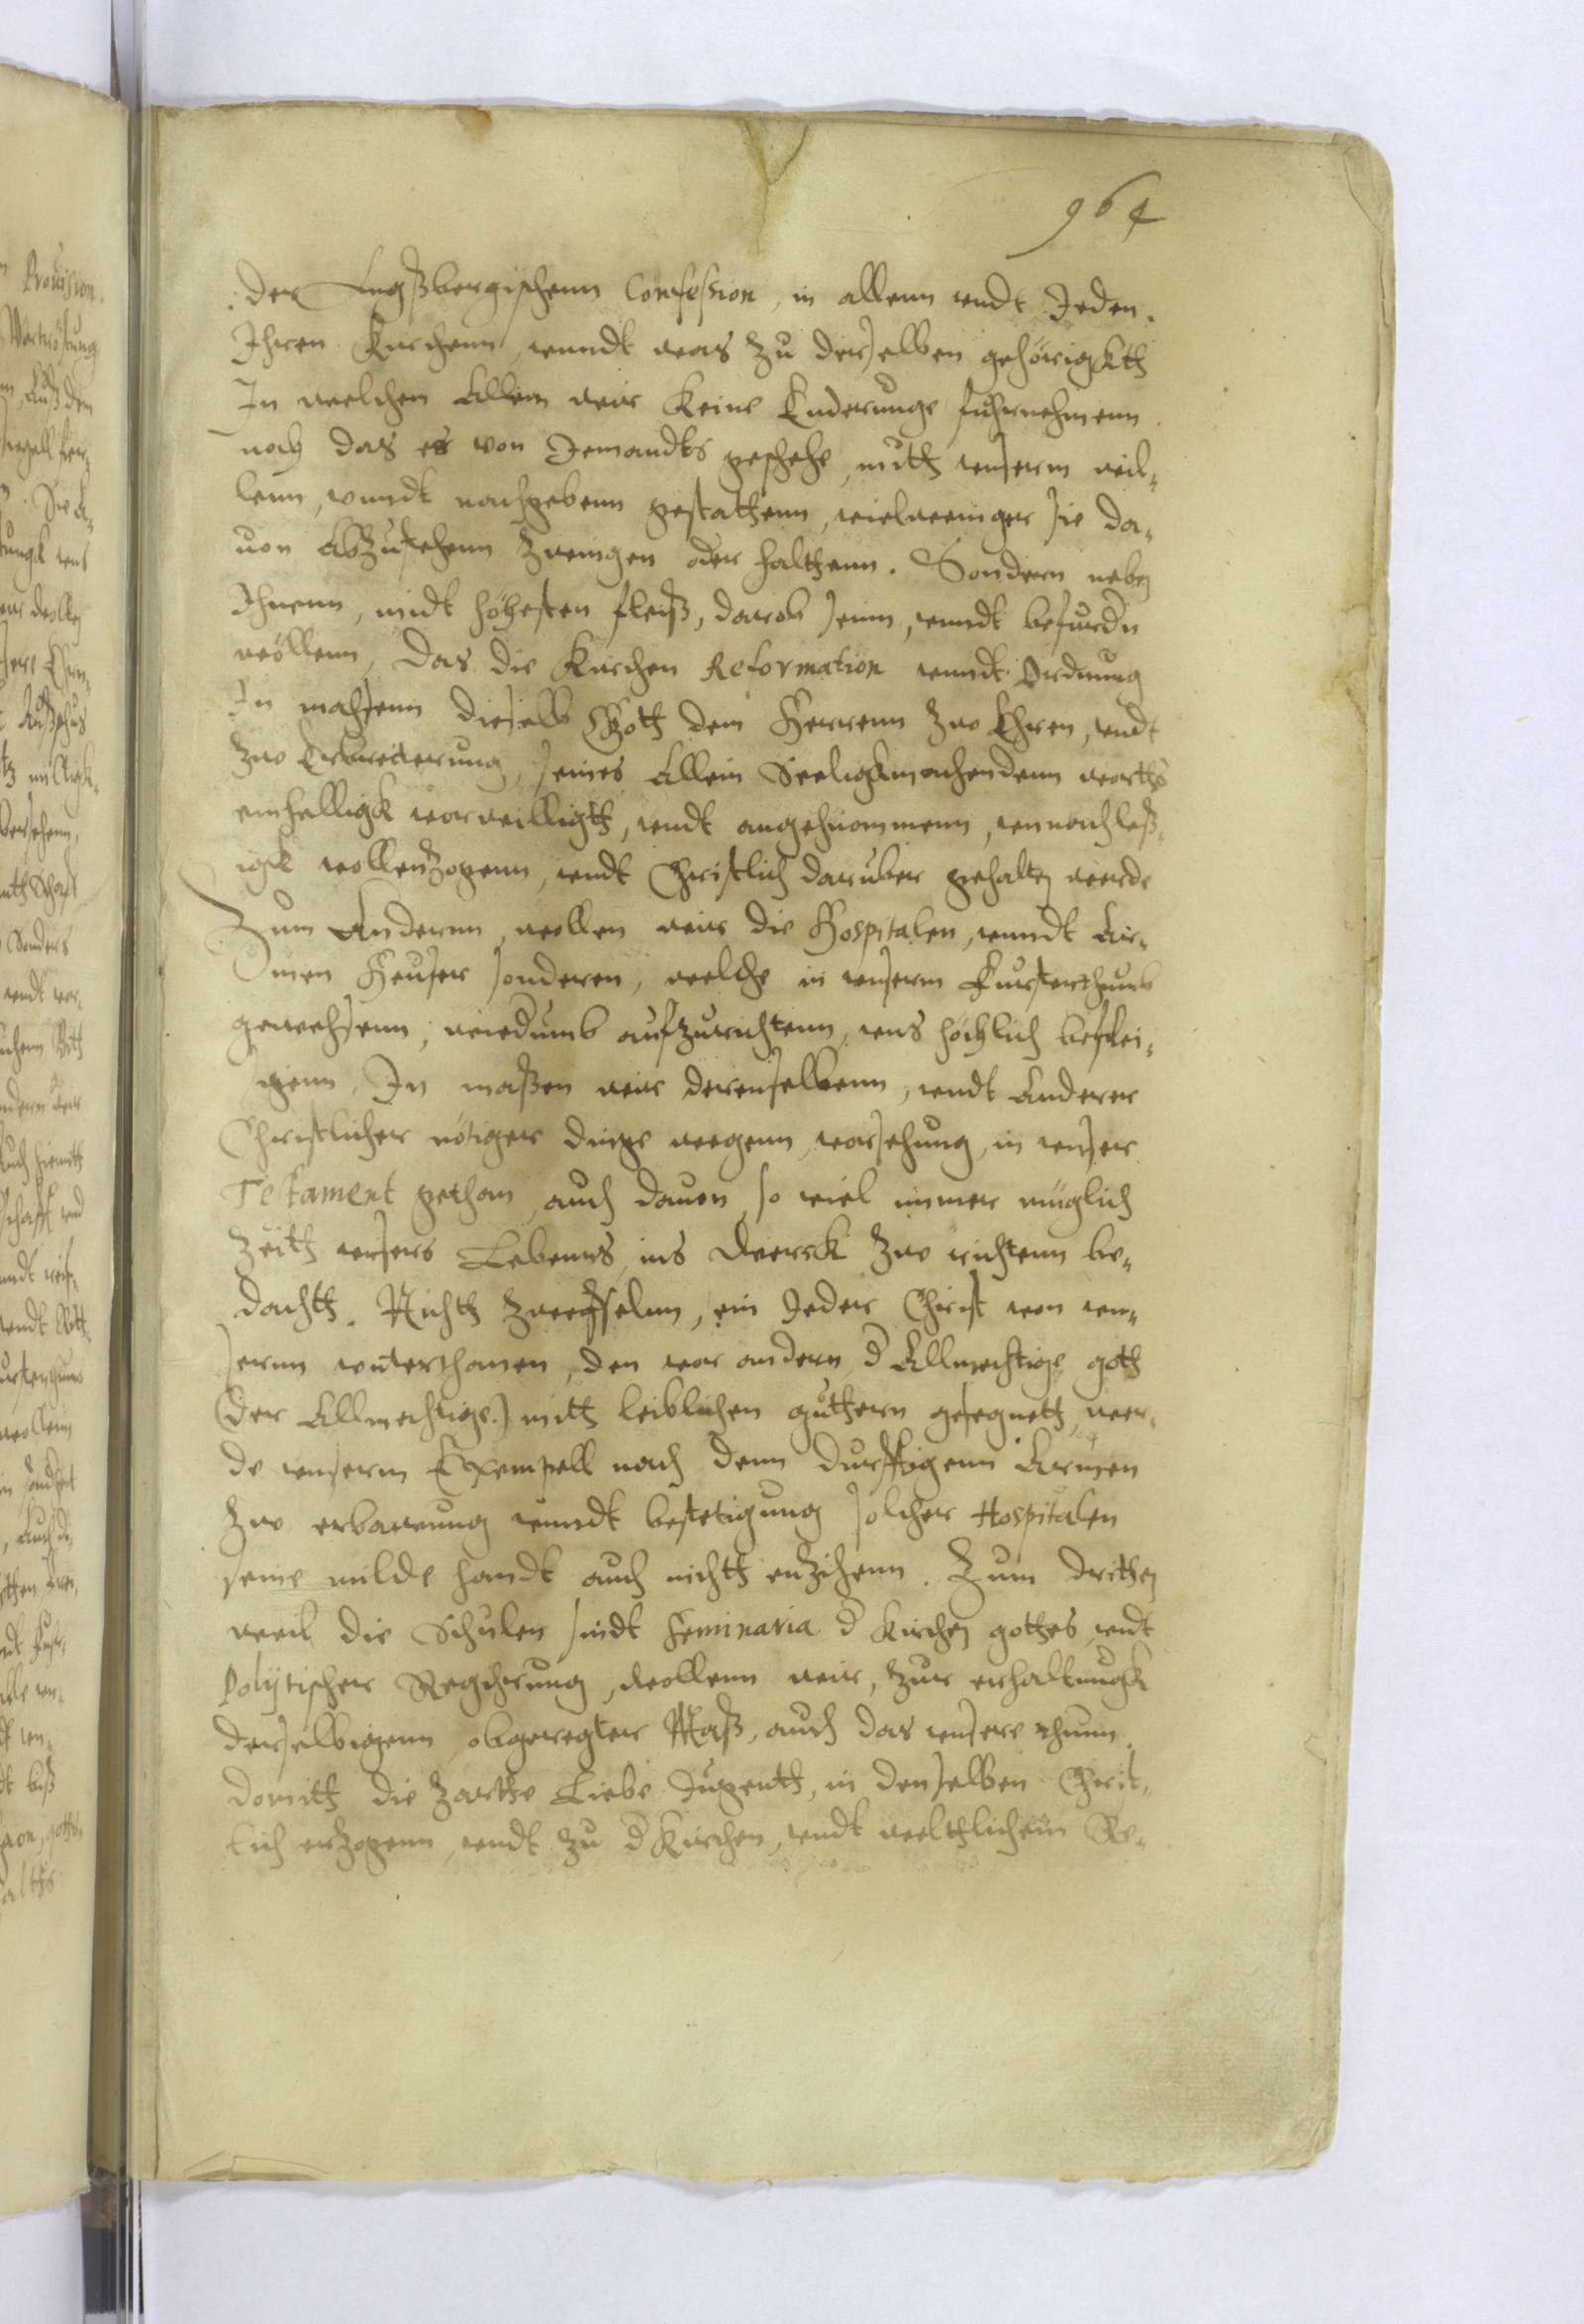 964
der Augßbergischenn Confession, in allenn vndt Jeden.
Ihren Kirchenn, vnndt was zu derselben gehörigkth
In welchen Allem wir Keine Enderunge fuhrnehmenn
noch das es von Jemandts geschehe, mith vnserm wil-
lenn, vnndt nachgebenn gestathenn, vielweniger sie da-
uon abzustehenn zwingen oder halthenn. Sondern neben
Ihnenn, midt höhesten fleiß, darob senn, vnndt befurdn
wöllenn, Das die Kirchen Reformation vnndt Ordnung
In massenn dieselb Goth dem Herrenn zw Ehren, vndt
zw Erbreiterung, seines Allein Seeligkmachendenn worths
einhelligk vorwilligth, vndt angehnommenn, vnnachleß-
igk vollenzogenn, vndt Christlich daruber gehalten werde
Zum Andernn, wollen wir die Hospitalen, vnndt Ar-
men Heuser sonderen, welche in vnserm Furstenthumb
gewehsenn, wiedumb aufzurichtenn, vns höchlich beflei-
sigenn, In maßen wir derenselbenn, vndt Anderer
Christlicher nötiger dinge wegenn, vorsehung, in vnser
Testament gethan, auch dauon, so viel immer müglich
zeith vnsers Lebenns, ins Werck zw richtenn be-
dachth. Nichth zweyfelnn, ein Jeder Christ von vn-
sernn vnterthanen, den vor andern d Allmechtige goth
(der Allmechtige.) mith leiblichen güthern gesegneth, wer-
de vnserm Exempell nach denn durfftigenn Armen
zw erbawung vnndt bestetigung solcher Hospitalen
seine milde handt auch nichtt enzihenn. Zum drithen
weil die Schulen sindt Seminaria d Kirchen gothes, vndt
Polÿtischer Regihrung, wollenn wir, zur erhaltungk
derselbigenn obgeregter Maß, auch das vnsere thunn.
domith die zarthe Liebe Jugenth, in denselben Christ-
lich erzogenn, vndt zu d Kirchen, vndt welthlichenn Re-